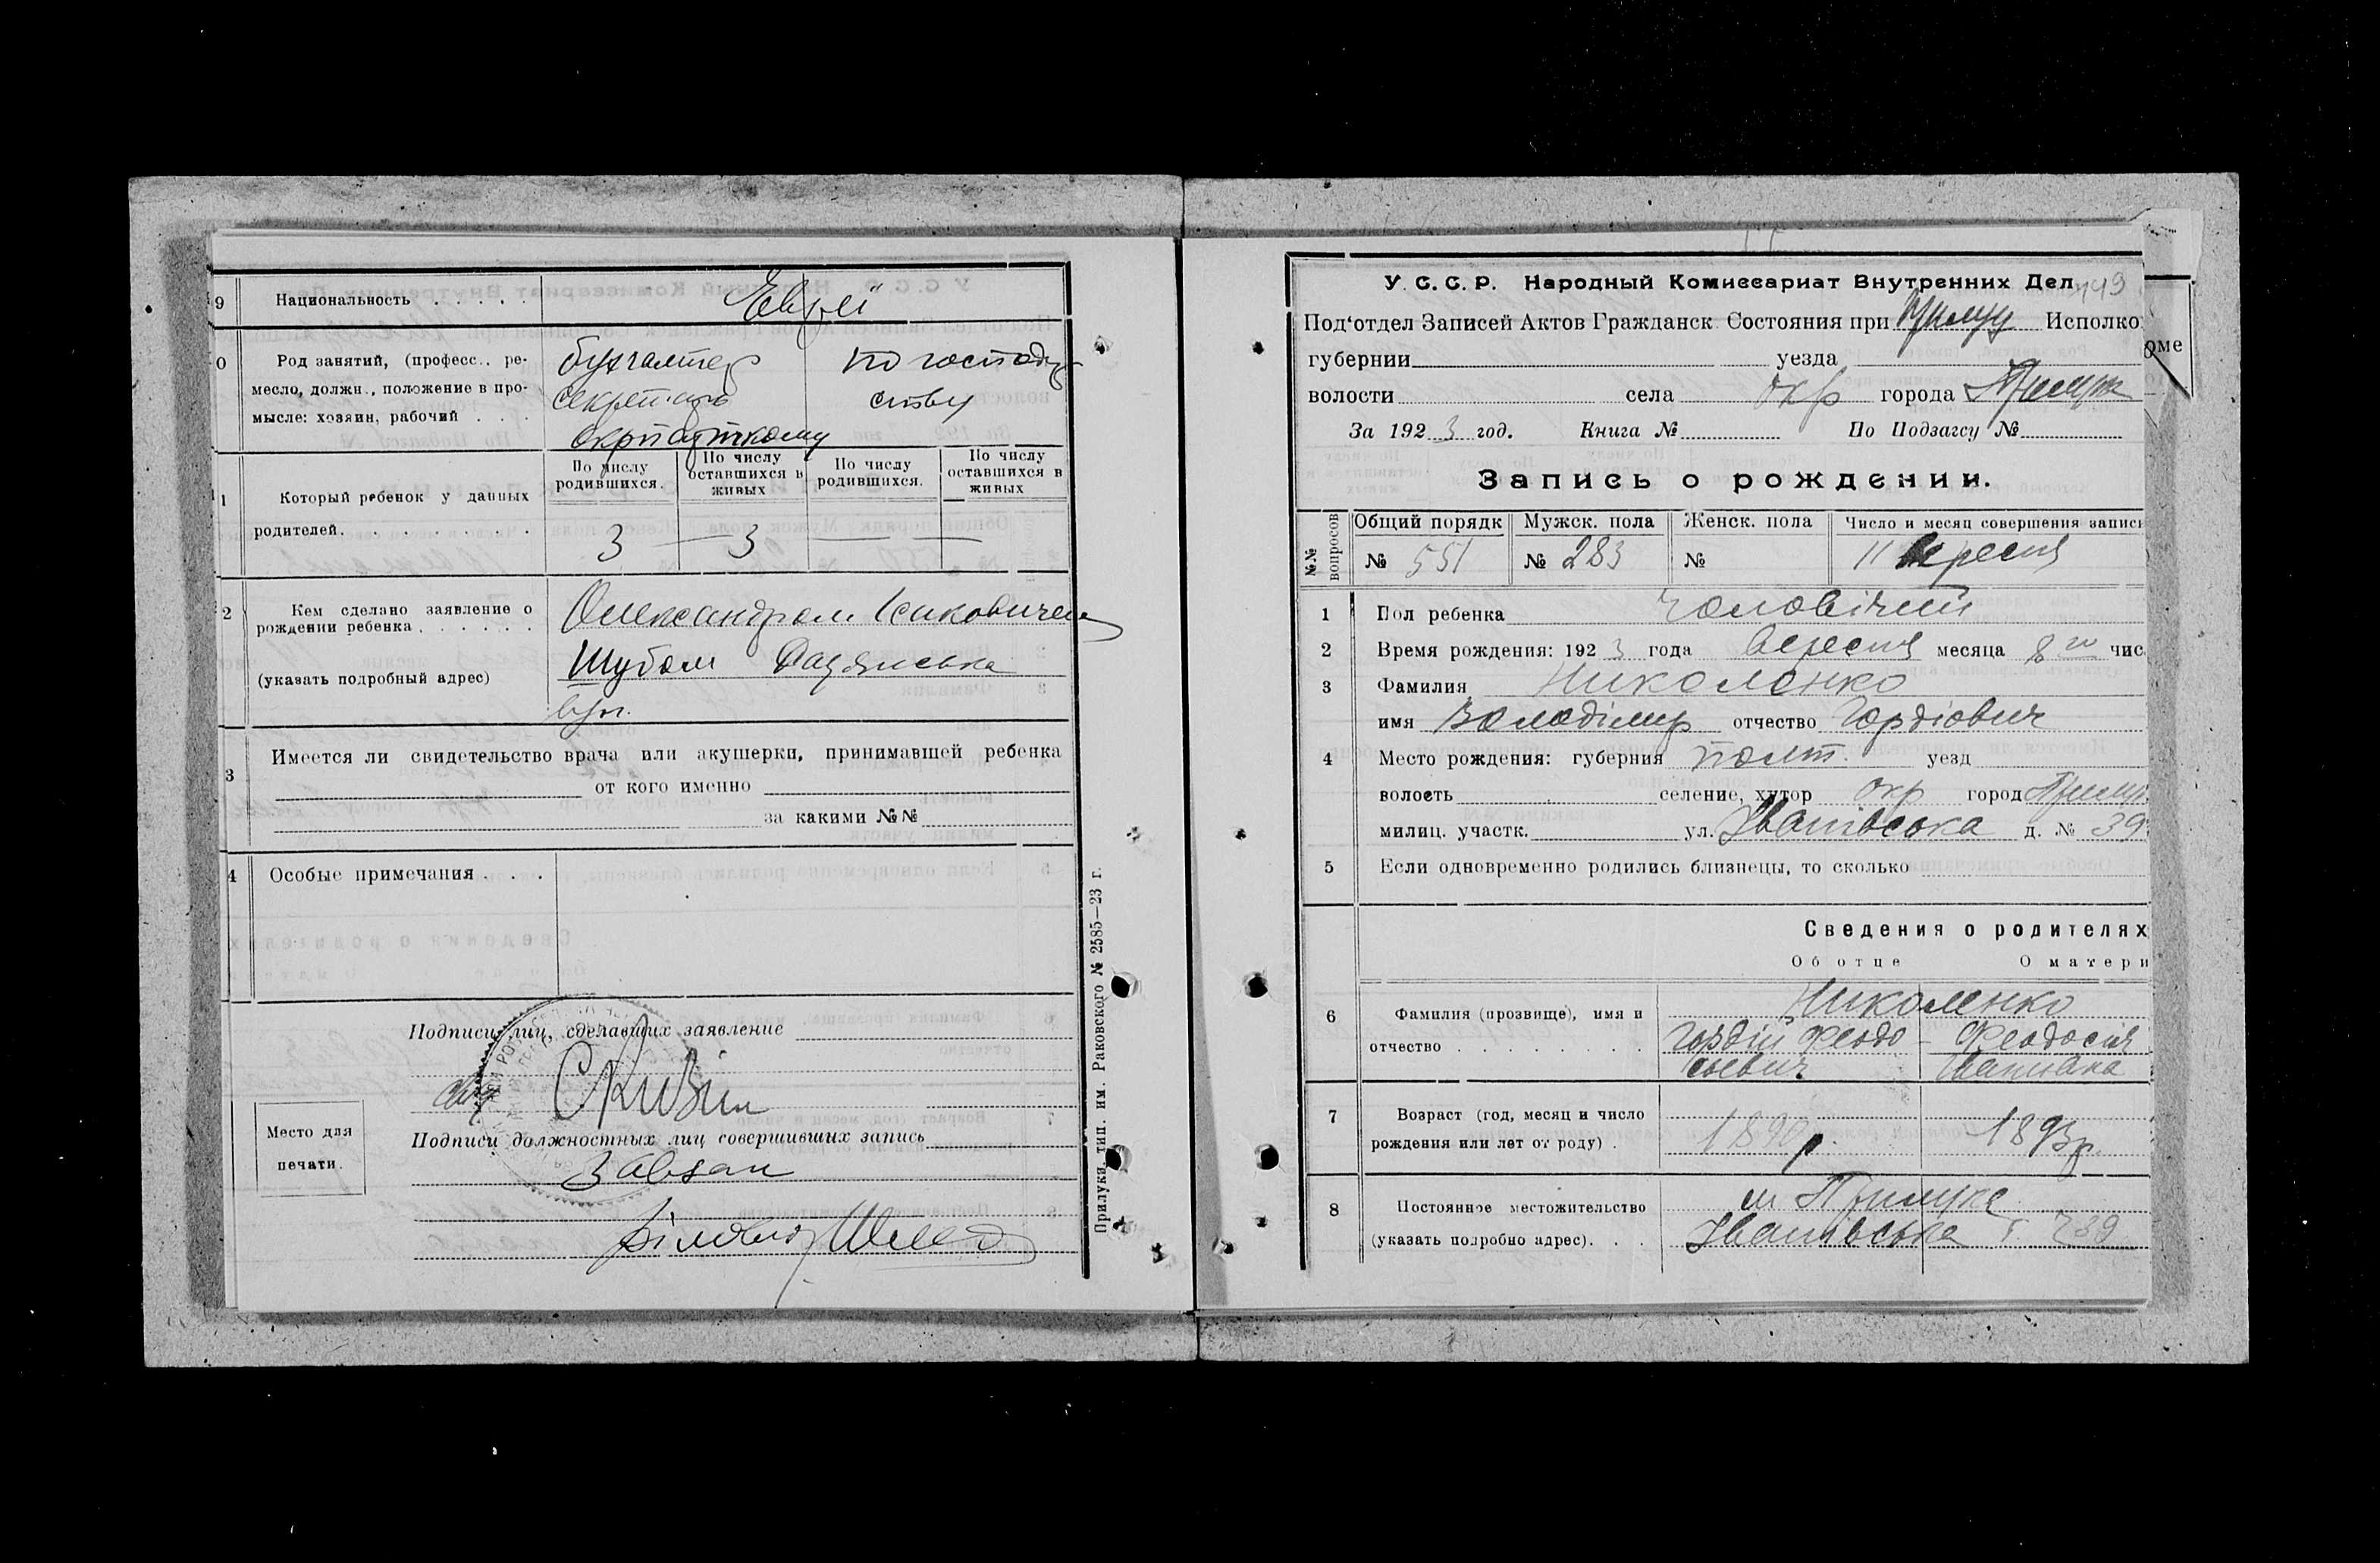 9 Национальность . . . . . Евреї
0 Род занятий, (професс., ре- бухгалтер по господар
месло, должн., положение в про- секретарь ству
мысле: хозяин, рабочий . . .
1 Который ребенок у данных По числу родившихся. По числу оставшихся в живых По числу родившихся. По числу оставшихся в живых
родителей. . . . . . . . 3 — 3 — —
2 Кем сделано заявление о Олександром Ісаковичем
рождении ребенка . . . . . .
(указать подробный адрес) Шубом
вул.
3 Имеется ли свидетельство врача или акушерки, принимавшей ребенка
от кого именно
за какими №№
4 Особые примечания . . .
Подписи лиц, сделавших заявление
Место для печати.
Подписи должностных лиц совершивших запись
Прилуки, тип. им. Раковского № 2585—23 г.
У. С. С. Р. Народный Комиссариат Внутренних Дел 449
Под‘отдел Записей Актов Гражданск. Состояния при Прилуц Исполко
оме
губернии уезда
волости села окр города Прилук
За 1923 год. Книга № По Подзагсу №
Запись о рождении.
№№ вопросов Общий порядк Мужск. пола Женск. пола Число и месяц совершения записи
№ 551 № 283 № 11 вересня
1 Пол ребенка чоловічий
2 Время рождения: 1923 года вересня месяца 8го чис
3 Фамилия Николенко
имя Володімир отчество Гордіович
4 Место рождения: губерния полт. уезд
волость селение, хутор окр город Прилук
милиц. участк. ул. Іванівська д. № 39
5 Если одновременно родились близнецы, то сколько
Сведения о родителях
Об отце О матери
6 Фамилия (прозвище), имя и Николенко
отчество . . . . . . . . Гордій Феодо- Феодосія
сьевич Іванівна
7 Возраст (год, месяц и число
рождения или лет от роду) . 1890 р. 1893 р.
8 Постоянное местожительство м Прилука
(указать подробно адрес). . . Іванівська